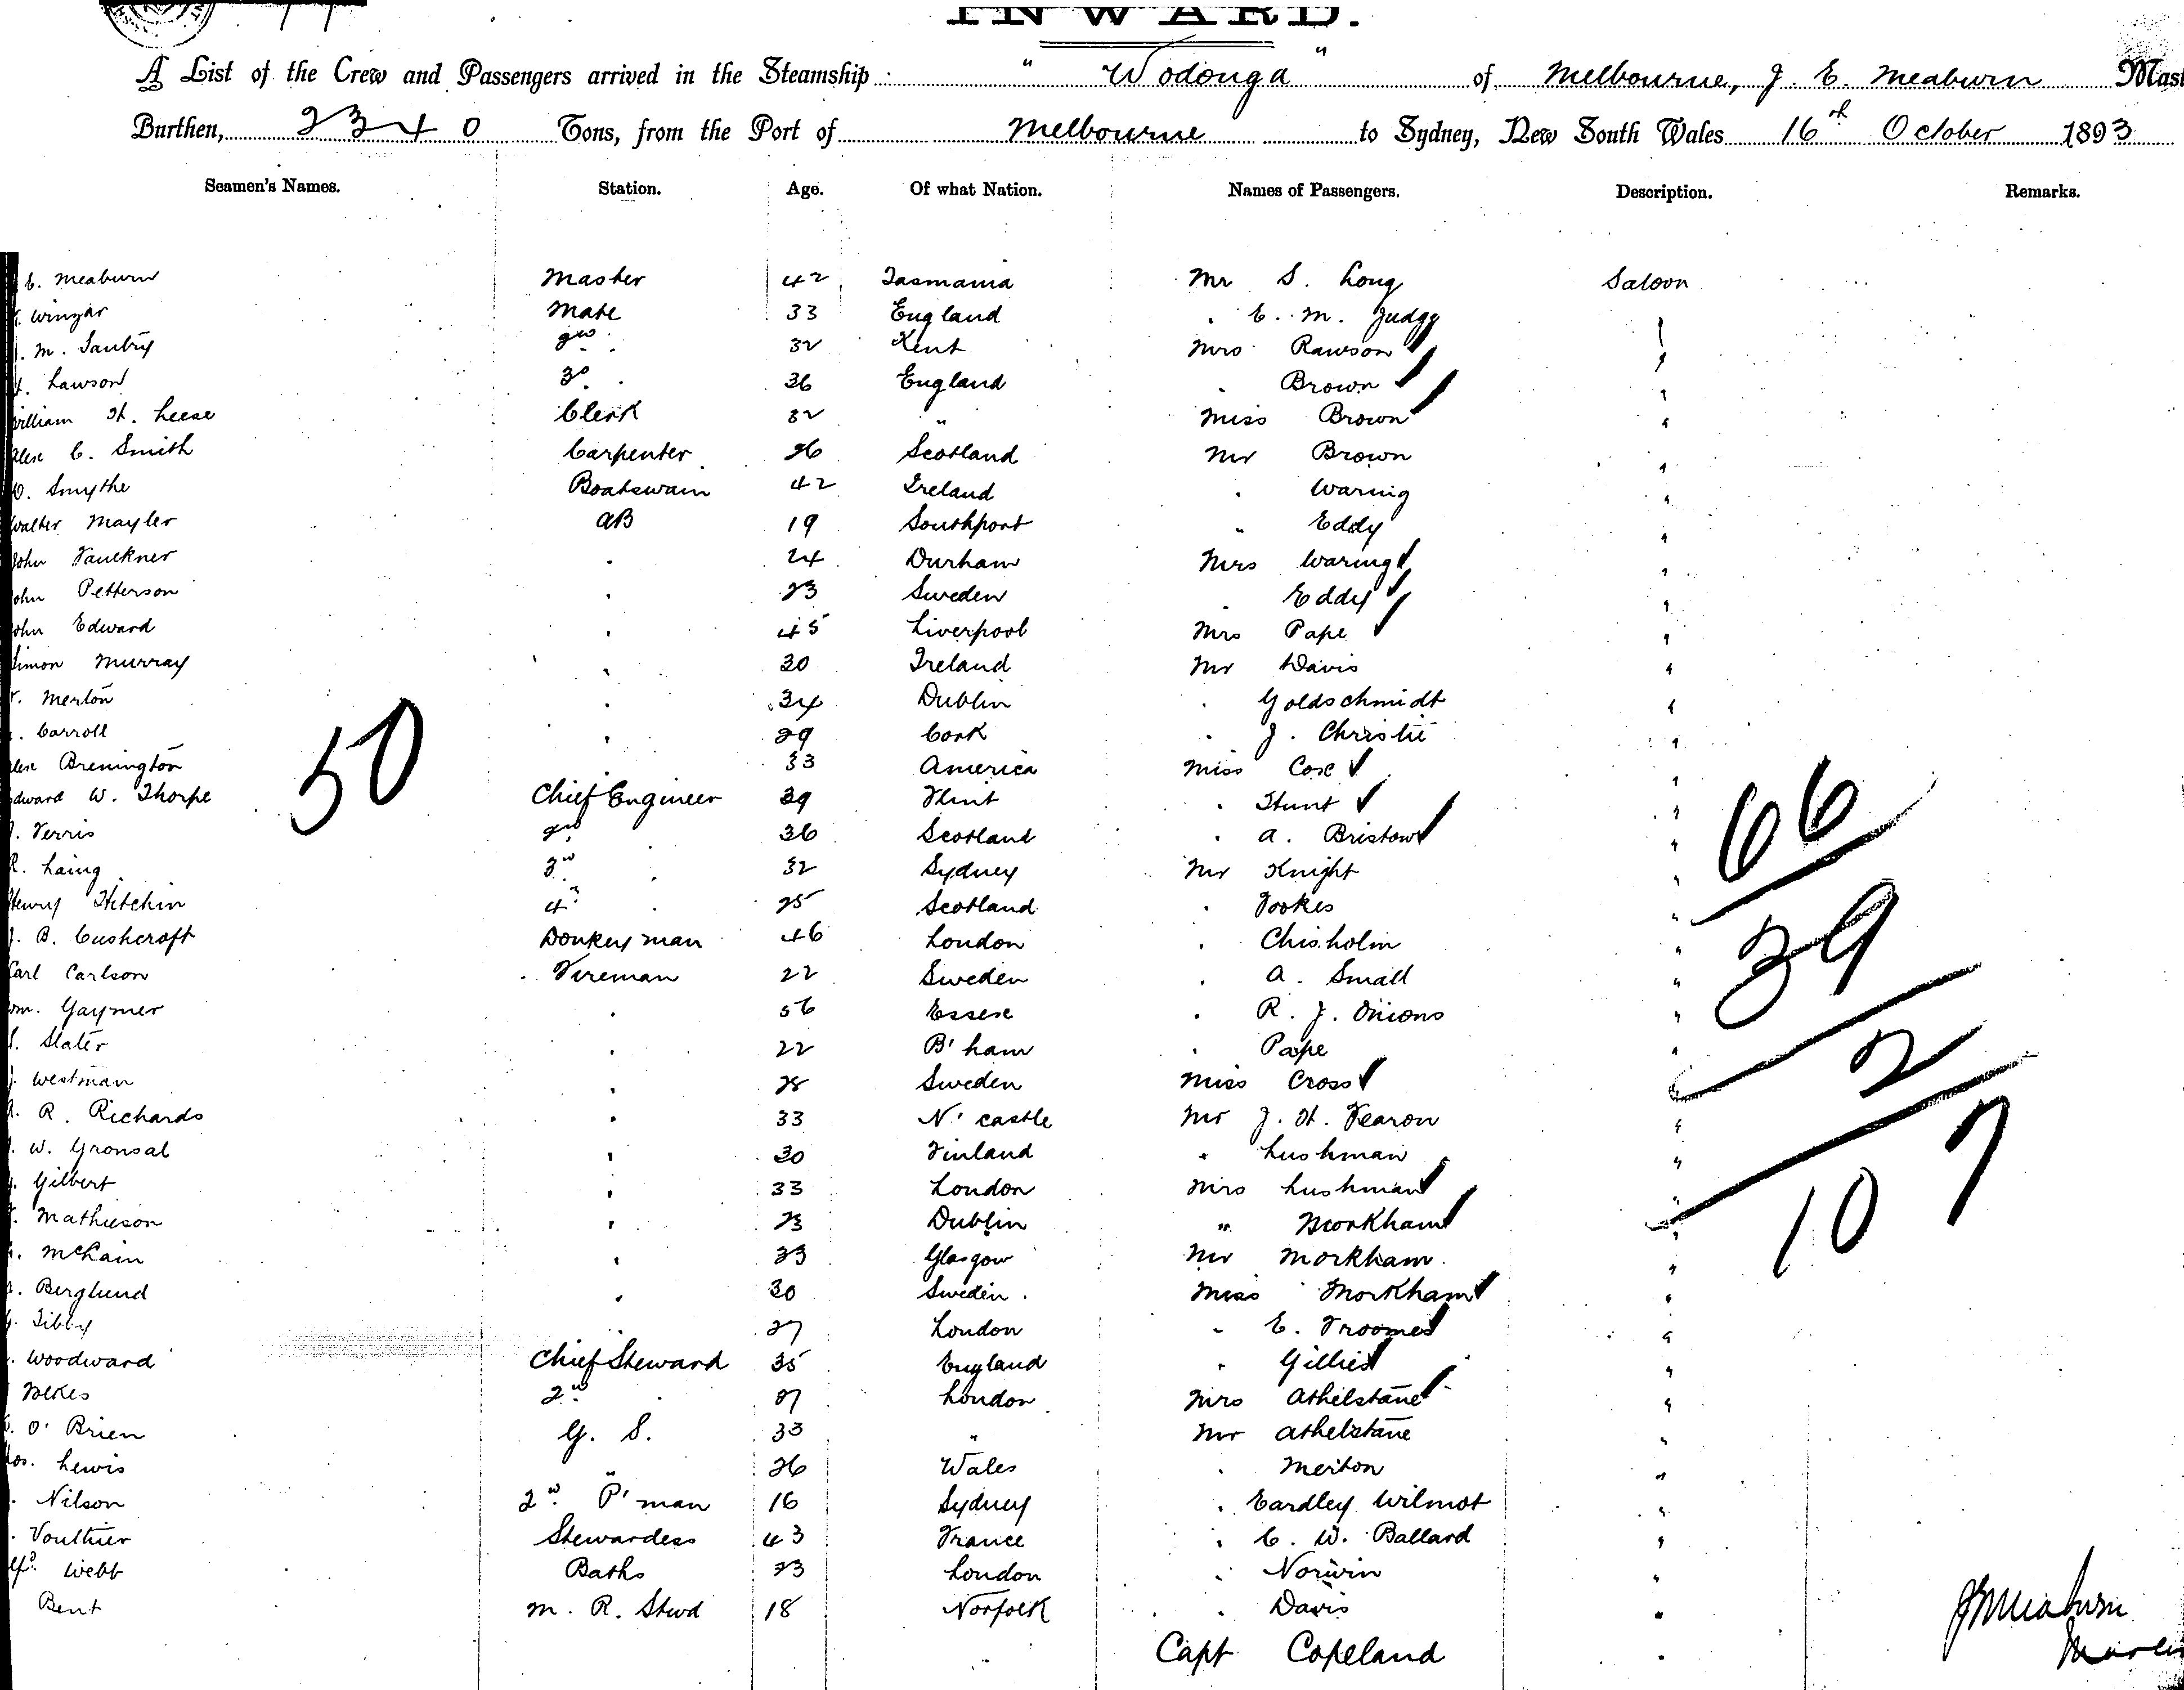 INWARD.
A List of the Crew and Passengers arrived in the Steamship "Wodonga" of Melbourne, J. E. Meaburn
Burthen, 2340 Tons, from the Port of Melbourne to Sydney, New South Wales 16th October 1893
Seamen's Names. Station. Age. Of what Nation. Names of Passengers. Description. Remarks.
E. Meaburn Master 42 Tasmania Mr S. Long Saloon
Winzar Mate 33 England " E. M. Judge "
M. 2nd 32 Kent Mrs Rawson "
Lawson 3rd 36 England " Brown "
William H. Leese Clerk 32 " Miss Brown "
Alex C. Smith Carpenter 26 Scotland Mr Brown "
O. Smythe Boatswain 42 Ireland " Waring "
Walter Mayler AB 19 Southport " Eddy "
John Faulkner " 24 Durham Mrs Waring "
John Petterson " 23 Sweden " Eddy "
John Edward " 45 Liverpool Mrs Pape "
Simon Murray " 30 Ireland Mr Davis "
Merton " 34 Dublin " Goldschmidt "
Carroll " 29 Cork " J. Christie "
50
Alex Brenington " 33 America Miss Cox "
Edward W. Thorpe Chief Engineer 39 Flint " Hunt "
66
Ferris 2nd 36 Scotland " A. Bristow "
R. Laing 3rd " 32 Sydney Mr Knight "
Henry Hitchin 4th " 25 Scotland " Fookes "
J. B. Cushcroft Donkeyman 46 London " Chisholm "
39
Carl Carlson Fireman 22 Sweden " A. Small "
Wm. Gaymer " 56 Essex " R. J. Onions "
Slater " 22 B'ham " Pape "
2
Westman " 28 Sweden Miss Cross "
R. Richards " 33 N'castle Mr J. H. Fearon "
W. Gronsal " 30 Finland " Lushman "
Gilbert " 33 London Mrs Lushman "
107
Mathieson " 23 Dublin " Morkham "
McKain " 33 Glasgow Mr Morkham "
Berglund " 30 Sweden Miss Morkham "
Libby " 27 London " E. Troomes "
Woodward Chief Steward 35 England " Gillies "
2nd " 27 London Mrs Athelstane "
O'Brien G. S. 33 " Mr Athelstane "
Lewis " 26 Wales " Merton "
Nilson 2nd P'man 16 Sydney " Eardley Wilmot "
Vouthier Stewardess 43 France " C. W. Ballard "
Webb Baths 23 London " Norwin "
Bent M. R. Stwd 18 Norfolk " Davis "
J E Meaburn
Capt Copeland "